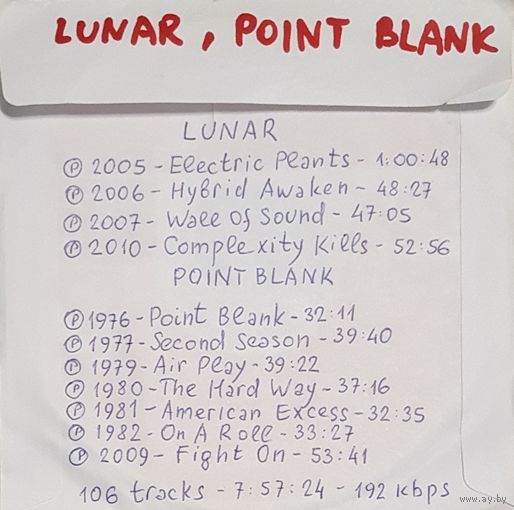 LUNAR, POINT BLANK
LUNAR
℗ 2005 - Electric Plants - 1:00:48
℗ 2006 - Hybrid Awaken - 48:27
℗ 2007 - Wall Of Sound - 47:05
℗ 2010 - Complexity Kills - 52:56
POINT BLANK
℗ 1976 - Point Blank - 32:11
℗ 1977 - Second Season - 39:40
℗ 1979 - Air Play - 39:22
℗ 1980 - The Hard Way - 37:16
℗ 1981 - American Excess - 32:35
℗ 1982 - On A Roll - 33:27
℗ 2009 - Fight On - 53:41
106 tracks - 7:57:24 - 192 kbps
www.ay.by